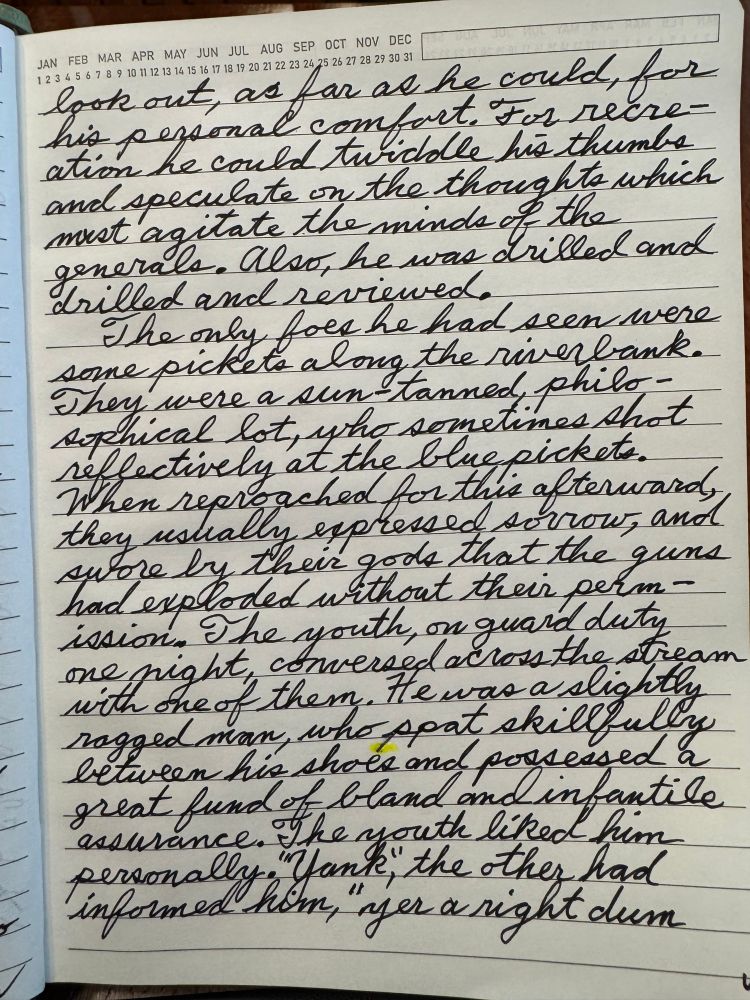 JAN FEB MAR APR MAY JUN JUL AUG SEP OCT NOV DEC
1 2 3 4 5 6 7 8 9 10 11 12 13 14 15 16 17 18 19 20 21 22 23 24 25 26 27 28 29 30 31
look out, as far as he could, for
his personal comfort. For recre-
ation he could twiddle his thumbs
and speculate on the thoughts which
must agitate the minds of the
generals. Also, he was drilled and
drilled and reviewed.
The only foes he had seen were
some pickets along the riverbank.
They were a sun-tanned, philo-
sophical lot, who sometimes shot
reflectively at the blue pickets.
When reproached for this afterward,
they usually expressed sorrow, and
swore by their gods that the guns
had exploded without their perm-
ission. The youth, on guard duty
one night, conversed across the stream
with one of them. He was a slightly
ragged man, who spat skillfully
between his shoes and possessed a
great fund of bland and infantile
assurance. The youth liked him
personally. "Yank", the other had
informed him, "yer a right dum